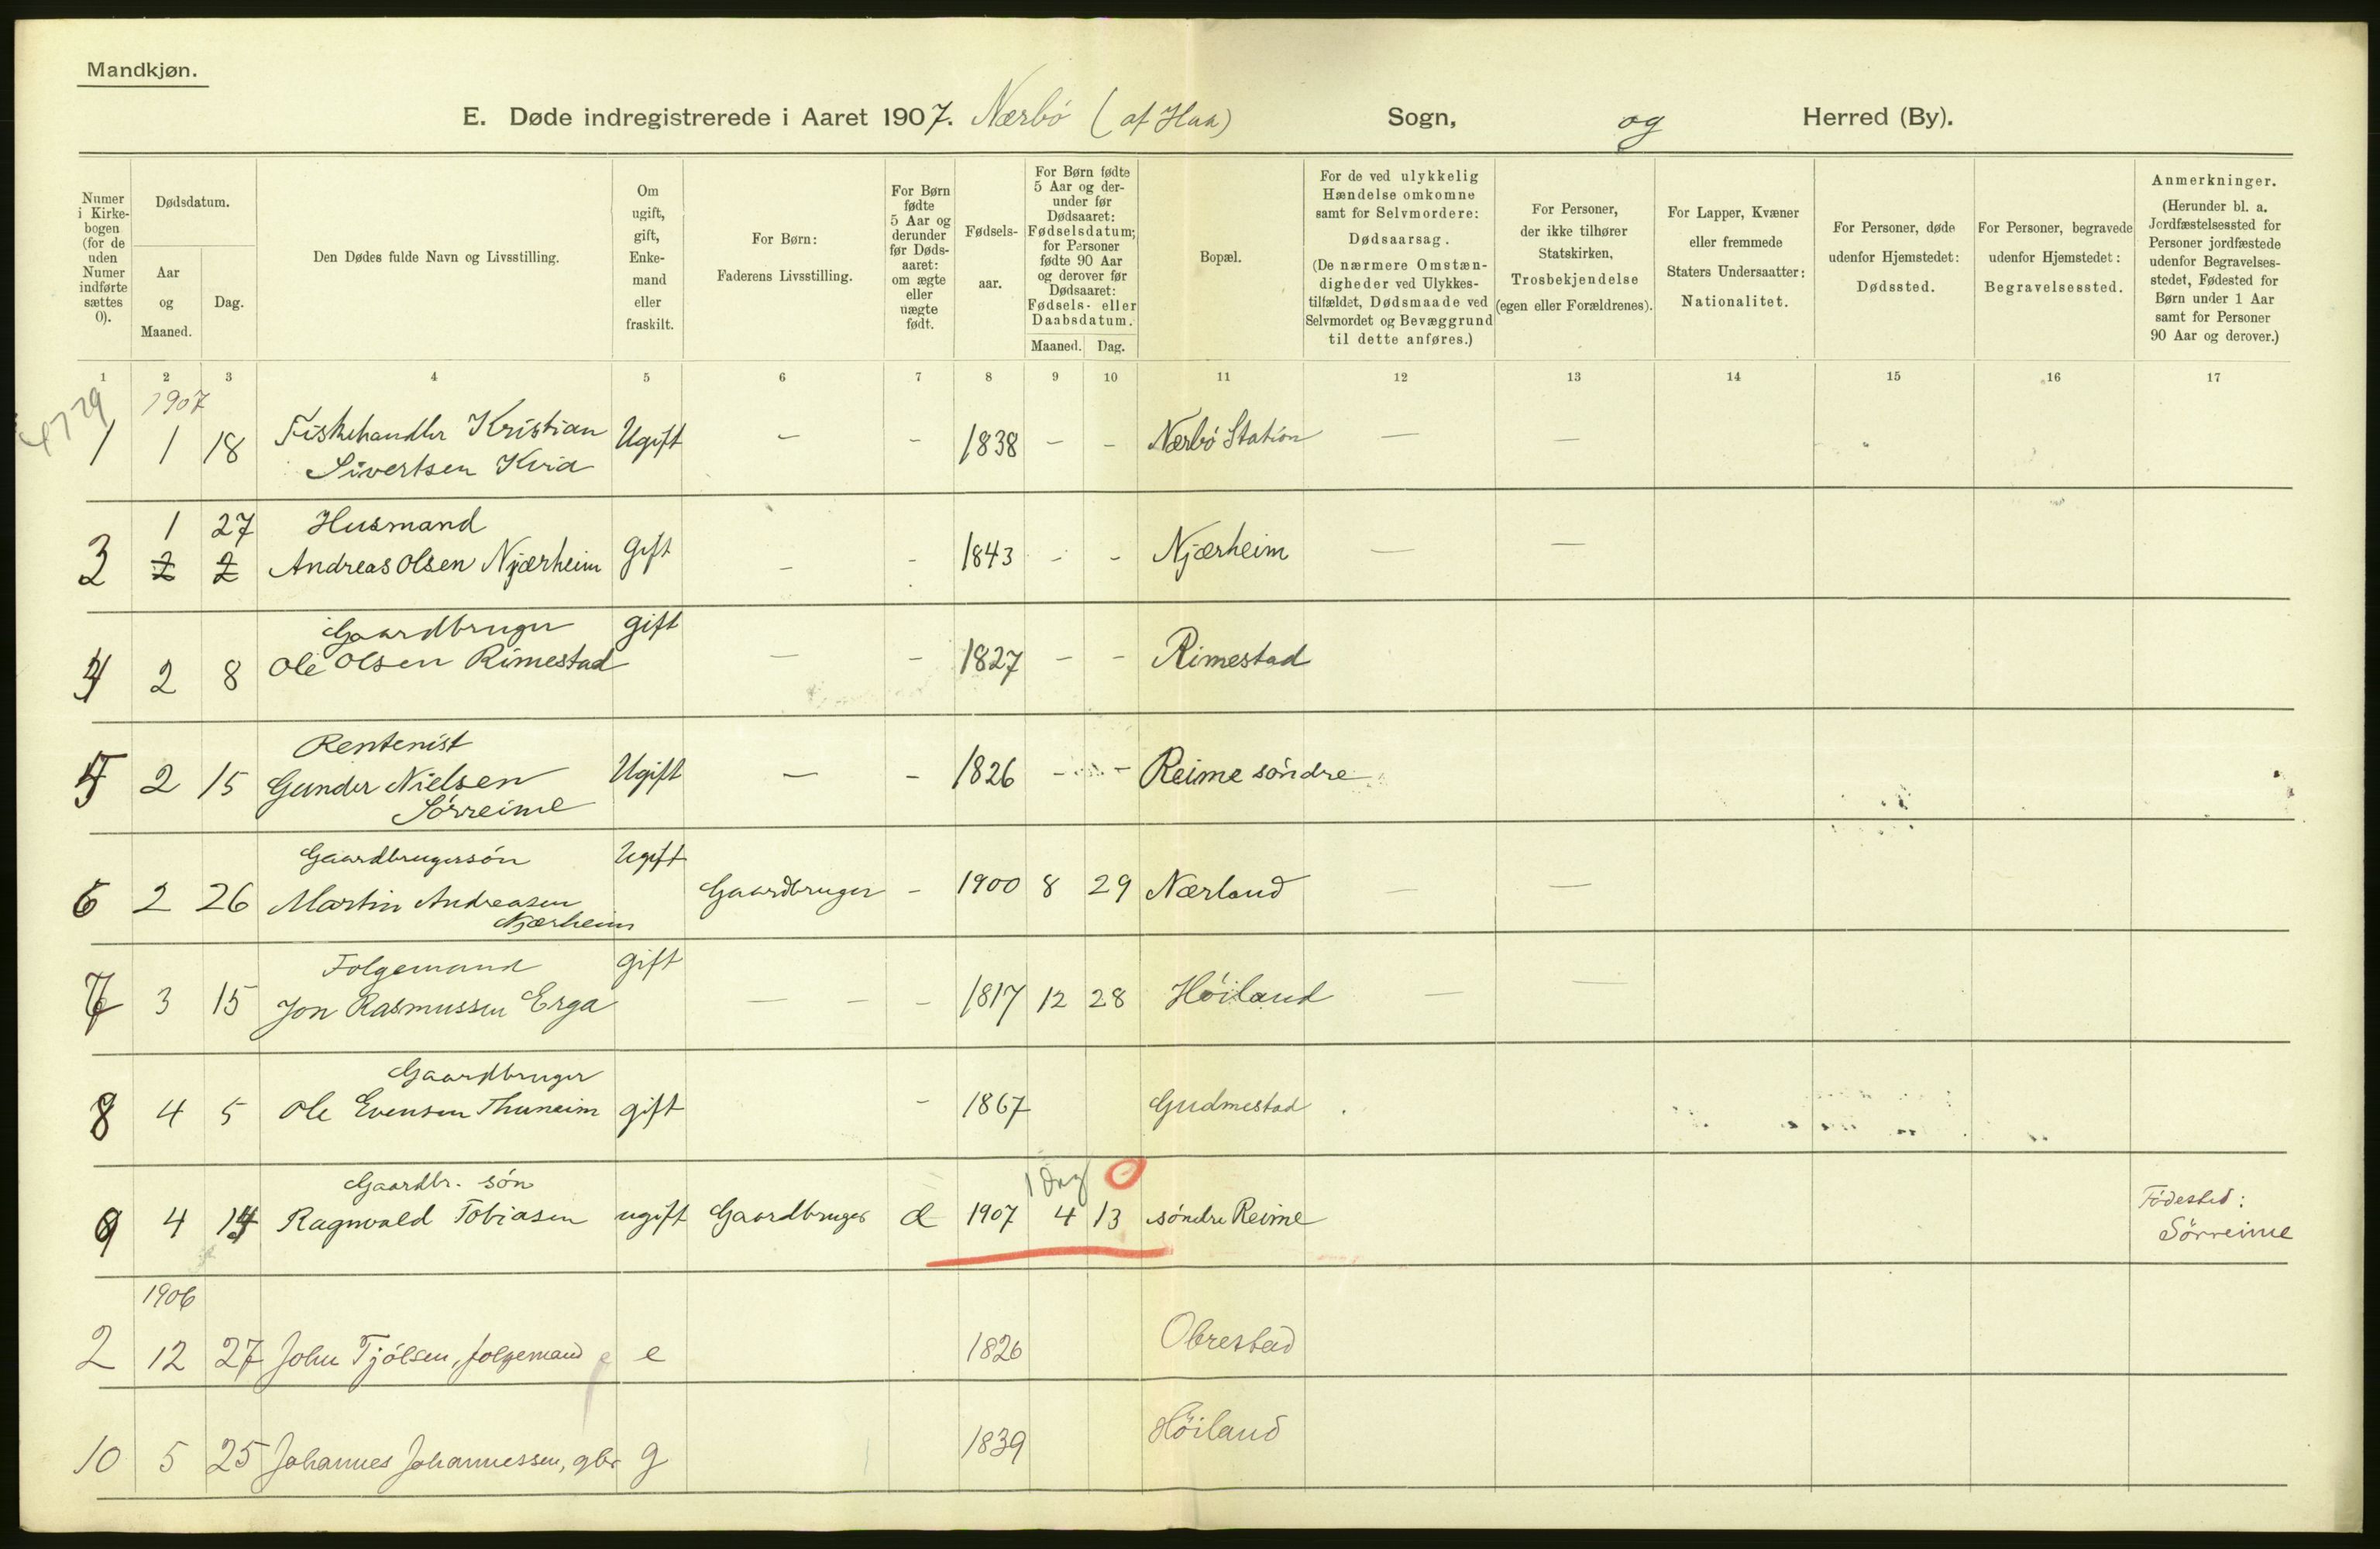 Mandkjøn.
E. Døde indregistrerede i Aaret 1907. Nærbö (af Haa) Sogn, og Herred (By).
Numer i Kirkebogen (for de uden Numer indførte sættes 0).
Dødsdatum.
Aar og Maaned.
Dag.
Den Dødes fulde Navn og Livsstilling.
Om ugift, gift, Enkemand eller fraskilt.
For Børn: Faderens Livsstilling.
For Børn fødte 5 Aar og derunder før Dødsaaret: om ægte eller uægte født.
Fødselsaar.
For Børn fødte 5 Aar og derunder før Dødsaaret: Fødselsdatum; for Personer fødte 90 Aar og derover før Dødsaaret: Fødsels- eller Daabsdatum.
Maaned. Dag.
Bopæl.
For de ved ulykkelig Hændelse omkomne samt for Selvmordere: Dødsaarsag. (De nærmere Omstændigheder ved Ulykkestilfældet, Dødsmaade ved Selvmordet og Bevæggrund til dette anføres.)
For Personer, der ikke tilhører Statskirken, Trosbekjendelse (egen eller Forældrenes).
For Lapper, Kvæner eller fremmede Staters Undersaatter: Nationalitet.
For Personer, døde udenfor Hjemstedet: Dødssted.
For Personer, begravede udenfor Hjemstedet: Begravelsessted.
Anmerkninger. (Herunder bl. a. Jordfæstelsessted for Personer jordfæstede udenfor Begravelsesstedet, Fødested for Børn under 1 Aar samt for Personer 90 Aar og derover.)
1 2 3 4 5 6 7 8 9 10 11 12 13 14 15 16 17
1907
1 1 18 Fiskehandler Kristian Ugift - - 1838 - - Nærbö Station — —
Sivertsen Kvia
1 27 Husmand
3 2 2 Andreas Olsen Njærheim Gift - - 1843 - - Njærheim — —
Gaardbruger gift
4 2 8 Ole Olsen Rimestad — - 1827 - - Rimestad
Rentenist
5 2 15 Gunder Nielsen Ugift — - 1826 - - Reime söndre
Sörreime
Gaardbrugersön Ugift
6 2 26 Martin Andreasen Gaardbruger - 1900 8 29 Nærland — —
Njærheim
Folgemand gift
7 3 15 Jon Rasmussen Erga — - - 1817 12 28 Höiland — —
Gaardbruger
8 4 5 Ole Evensen Thuneim gift - 1867 Gudmestad
Gaardbr. sön 1 Dag
9 4 14 Ragnvald Tobiasen ugift Gaardbruger 1907 4 13 söndre Reime Födested:
Sörreime
1906
2 12 27 John Tjölsen, folgemand e 1826 Obrestad
10 5 25 Johannes Johannessen, gbr g 1839 Höiland